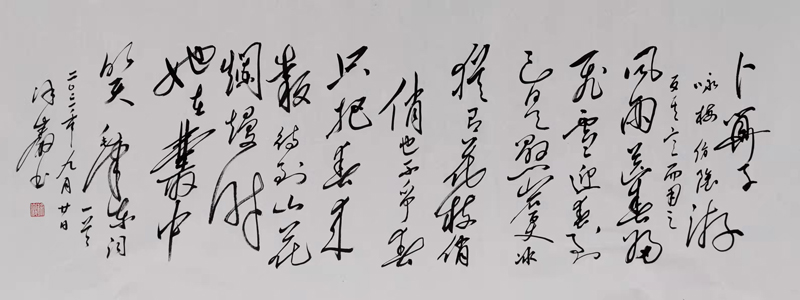 卜算子
咏梅 仿陆游
反其意而用之
风雨送春归
飞雪迎春到
已是悬崖百丈冰
犹有花枝俏
俏也不争春
只把春来
报 待到山花
烂漫时
她在丛中
笑 毛泽东词
一首
二〇二二年九月廿日
书